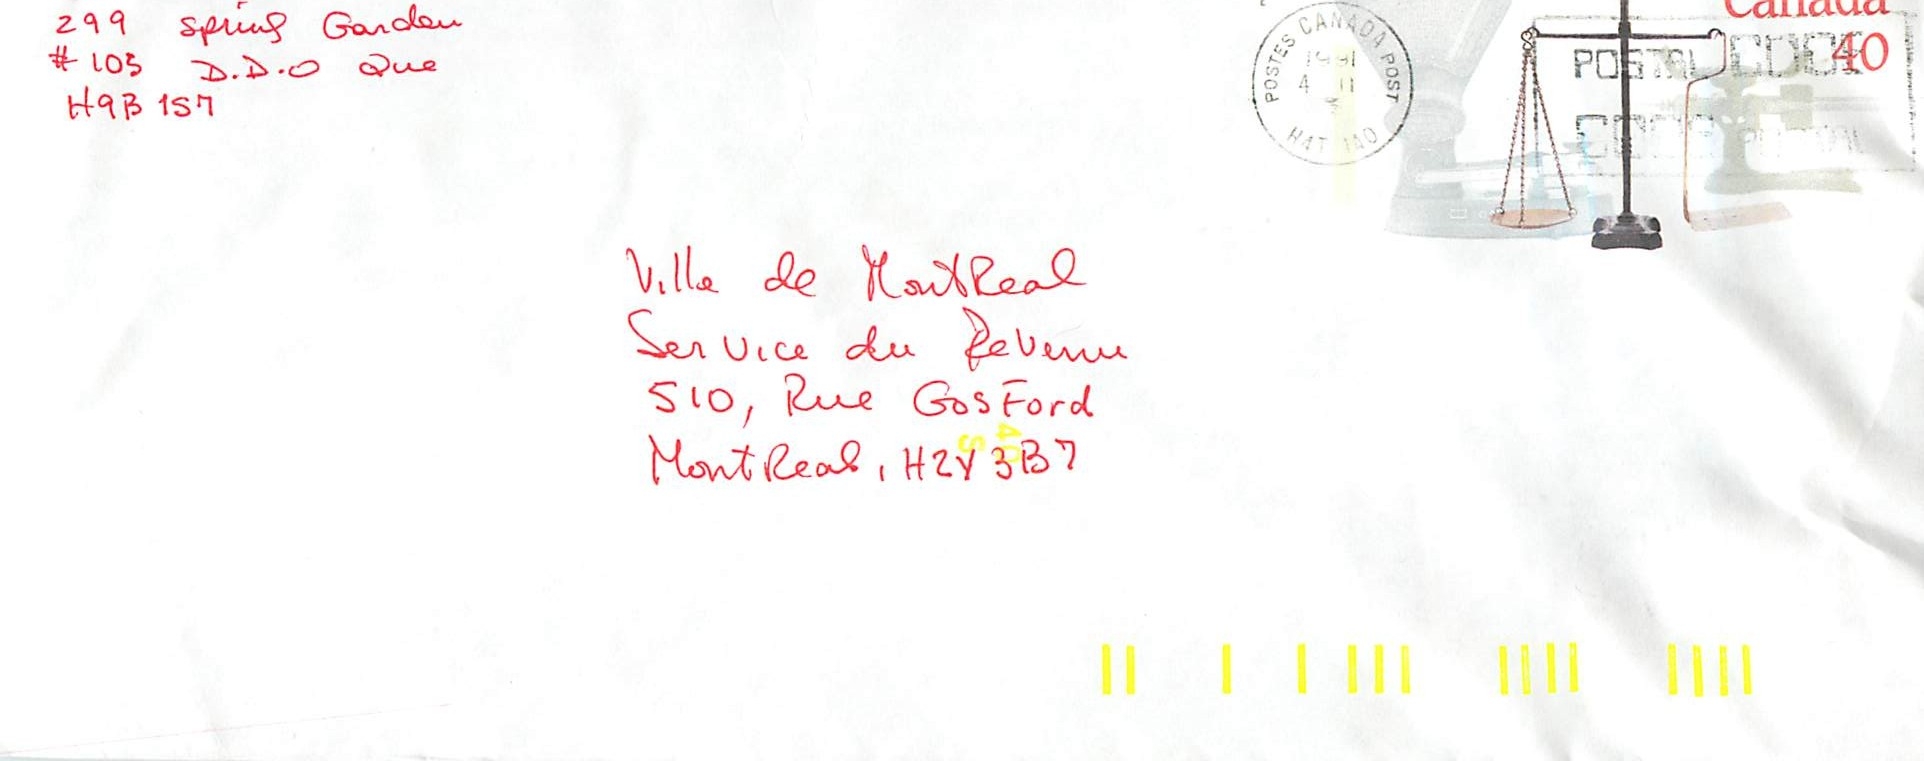 299 Spring Garden
# 105 D.D.O Que
H9B 1S7
POSTES CANADA POST
1991
4 11
H4T 1A0
Canada
40
POSTAL CODE
CODE POSTAL
Ville de MontReal
Service du Revenu
510, Rue GosFord
MontReal, H2Y 3B7
40
S